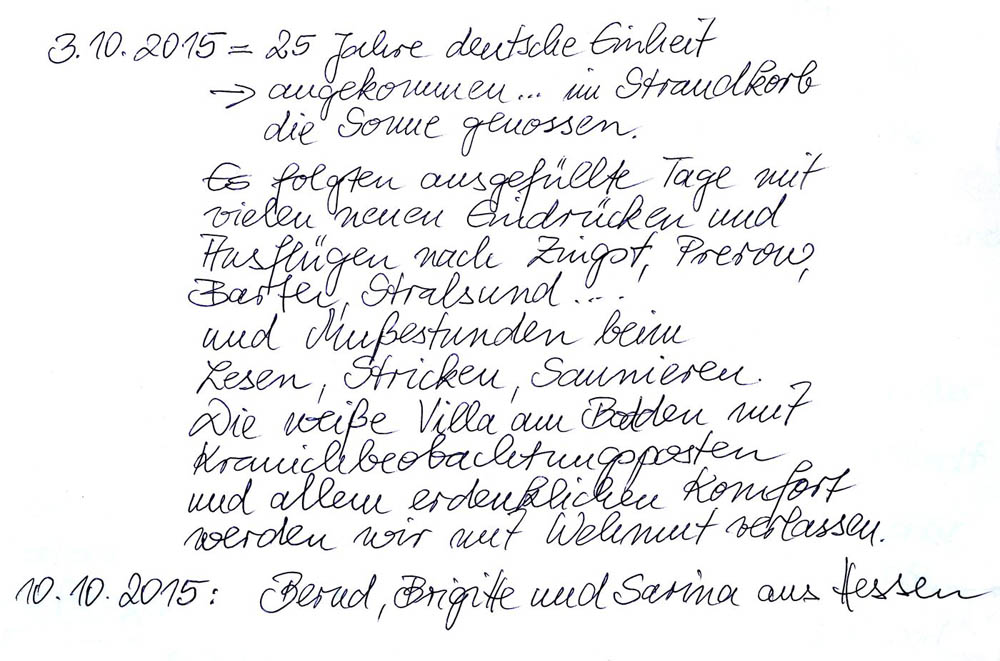 3.10.2015 = 25 Jahre deutsche Einheit
→ angekommen... im Strandkorb
die Sonne genossen.
Es folgten ausgefüllte Tage mit
vielen neuen Eindrücken und
Ausflügen nach Zingst, Prerow,
Barter, Stralsund....
und Mußestunden beim
Lesen, Stricken, Saunieren.
Die weiße Villa am Bodden mit
Kranichbeobachtungsposten
und allem erdenklichen Komfort
werden wir mit Wehmut verlassen.
10.10.2015: Bernd, Brigitte und Sarina aus Hessen